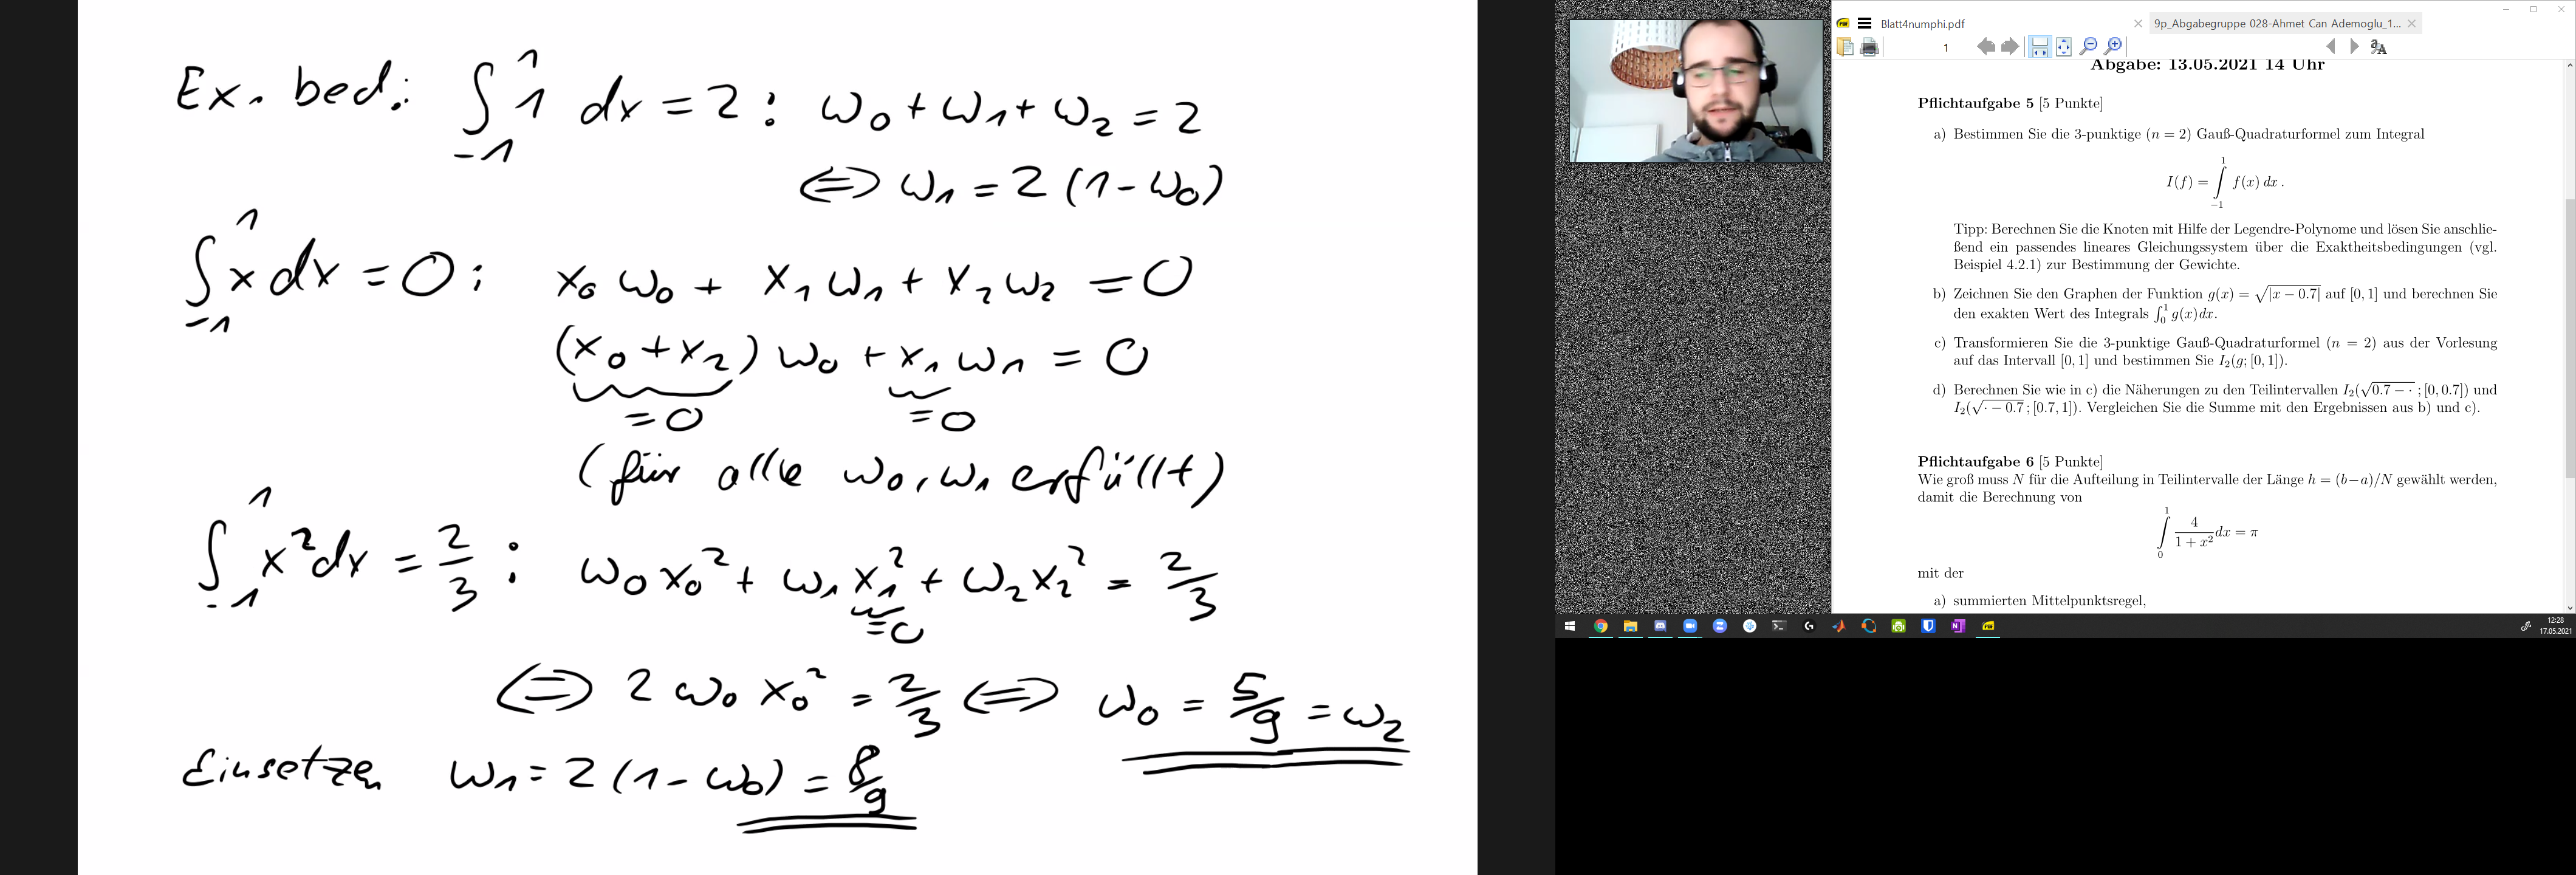 Ex. bed.: ∫_{-1}^{1} 1 dx = 2 : ω₀ + ω₁ + ω₂ = 2
⇔ ω₁ = 2 (1 - ω₀)
∫_{-1}^{1} x dx = 0 : x₀ ω₀ + x₁ ω₁ + x₂ ω₂ = 0
(x₀ + x₂) ω₀ + x₁ ω₁ = 0
= 0 = 0
(für alle ω₀, ω₁ erfüllt)
∫_{-1}^{1} x² dx = 2/3 : ω₀ x₀² + ω₁ x₁² + ω₂ x₂² = 2/3
= 0
⇔ 2 ω₀ x₀² = 2/3 ⇔ ω₀ = 5/9 = ω₂
Einsetzen ω₁ = 2 (1 - ω₀) = 8/9
Blatt4numphi.pdf
9p_Abgabegruppe 028-Ahmet Can Ademoglu_1...
1
Abgabe: 13.05.2021 14 Uhr
Pflichtaufgabe 5 [5 Punkte]
a) Bestimmen Sie die 3-punktige (n = 2) Gauß-Quadraturformel zum Integral
I(f) = ∫_{-1}^{1} f(x) dx .
Tipp: Berechnen Sie die Knoten mit Hilfe der Legendre-Polynome und lösen Sie anschlie-
ßend ein passendes lineares Gleichungssystem über die Exaktheitsbedingungen (vgl.
Beispiel 4.2.1) zur Bestimmung der Gewichte.
b) Zeichnen Sie den Graphen der Funktion g(x) = √|x − 0.7| auf [0, 1] und berechnen Sie
den exakten Wert des Integrals ∫_0^1 g(x)dx.
c) Transformieren Sie die 3-punktige Gauß-Quadraturformel (n = 2) aus der Vorlesung
auf das Intervall [0, 1] und bestimmen Sie I₂(g; [0, 1]).
d) Berechnen Sie wie in c) die Näherungen zu den Teilintervallen I₂(√(0.7 − ·) ; [0, 0.7]) und
I₂(√(· − 0.7) ; [0.7, 1]). Vergleichen Sie die Summe mit den Ergebnissen aus b) und c).
Pflichtaufgabe 6 [5 Punkte]
Wie groß muss N für die Aufteilung in Teilintervalle der Länge h = (b−a)/N gewählt werden,
damit die Berechnung von
∫_0^1 4/(1 + x²) dx = π
mit der
a) summierten Mittelpunktsregel,
12:28
17.05.2021